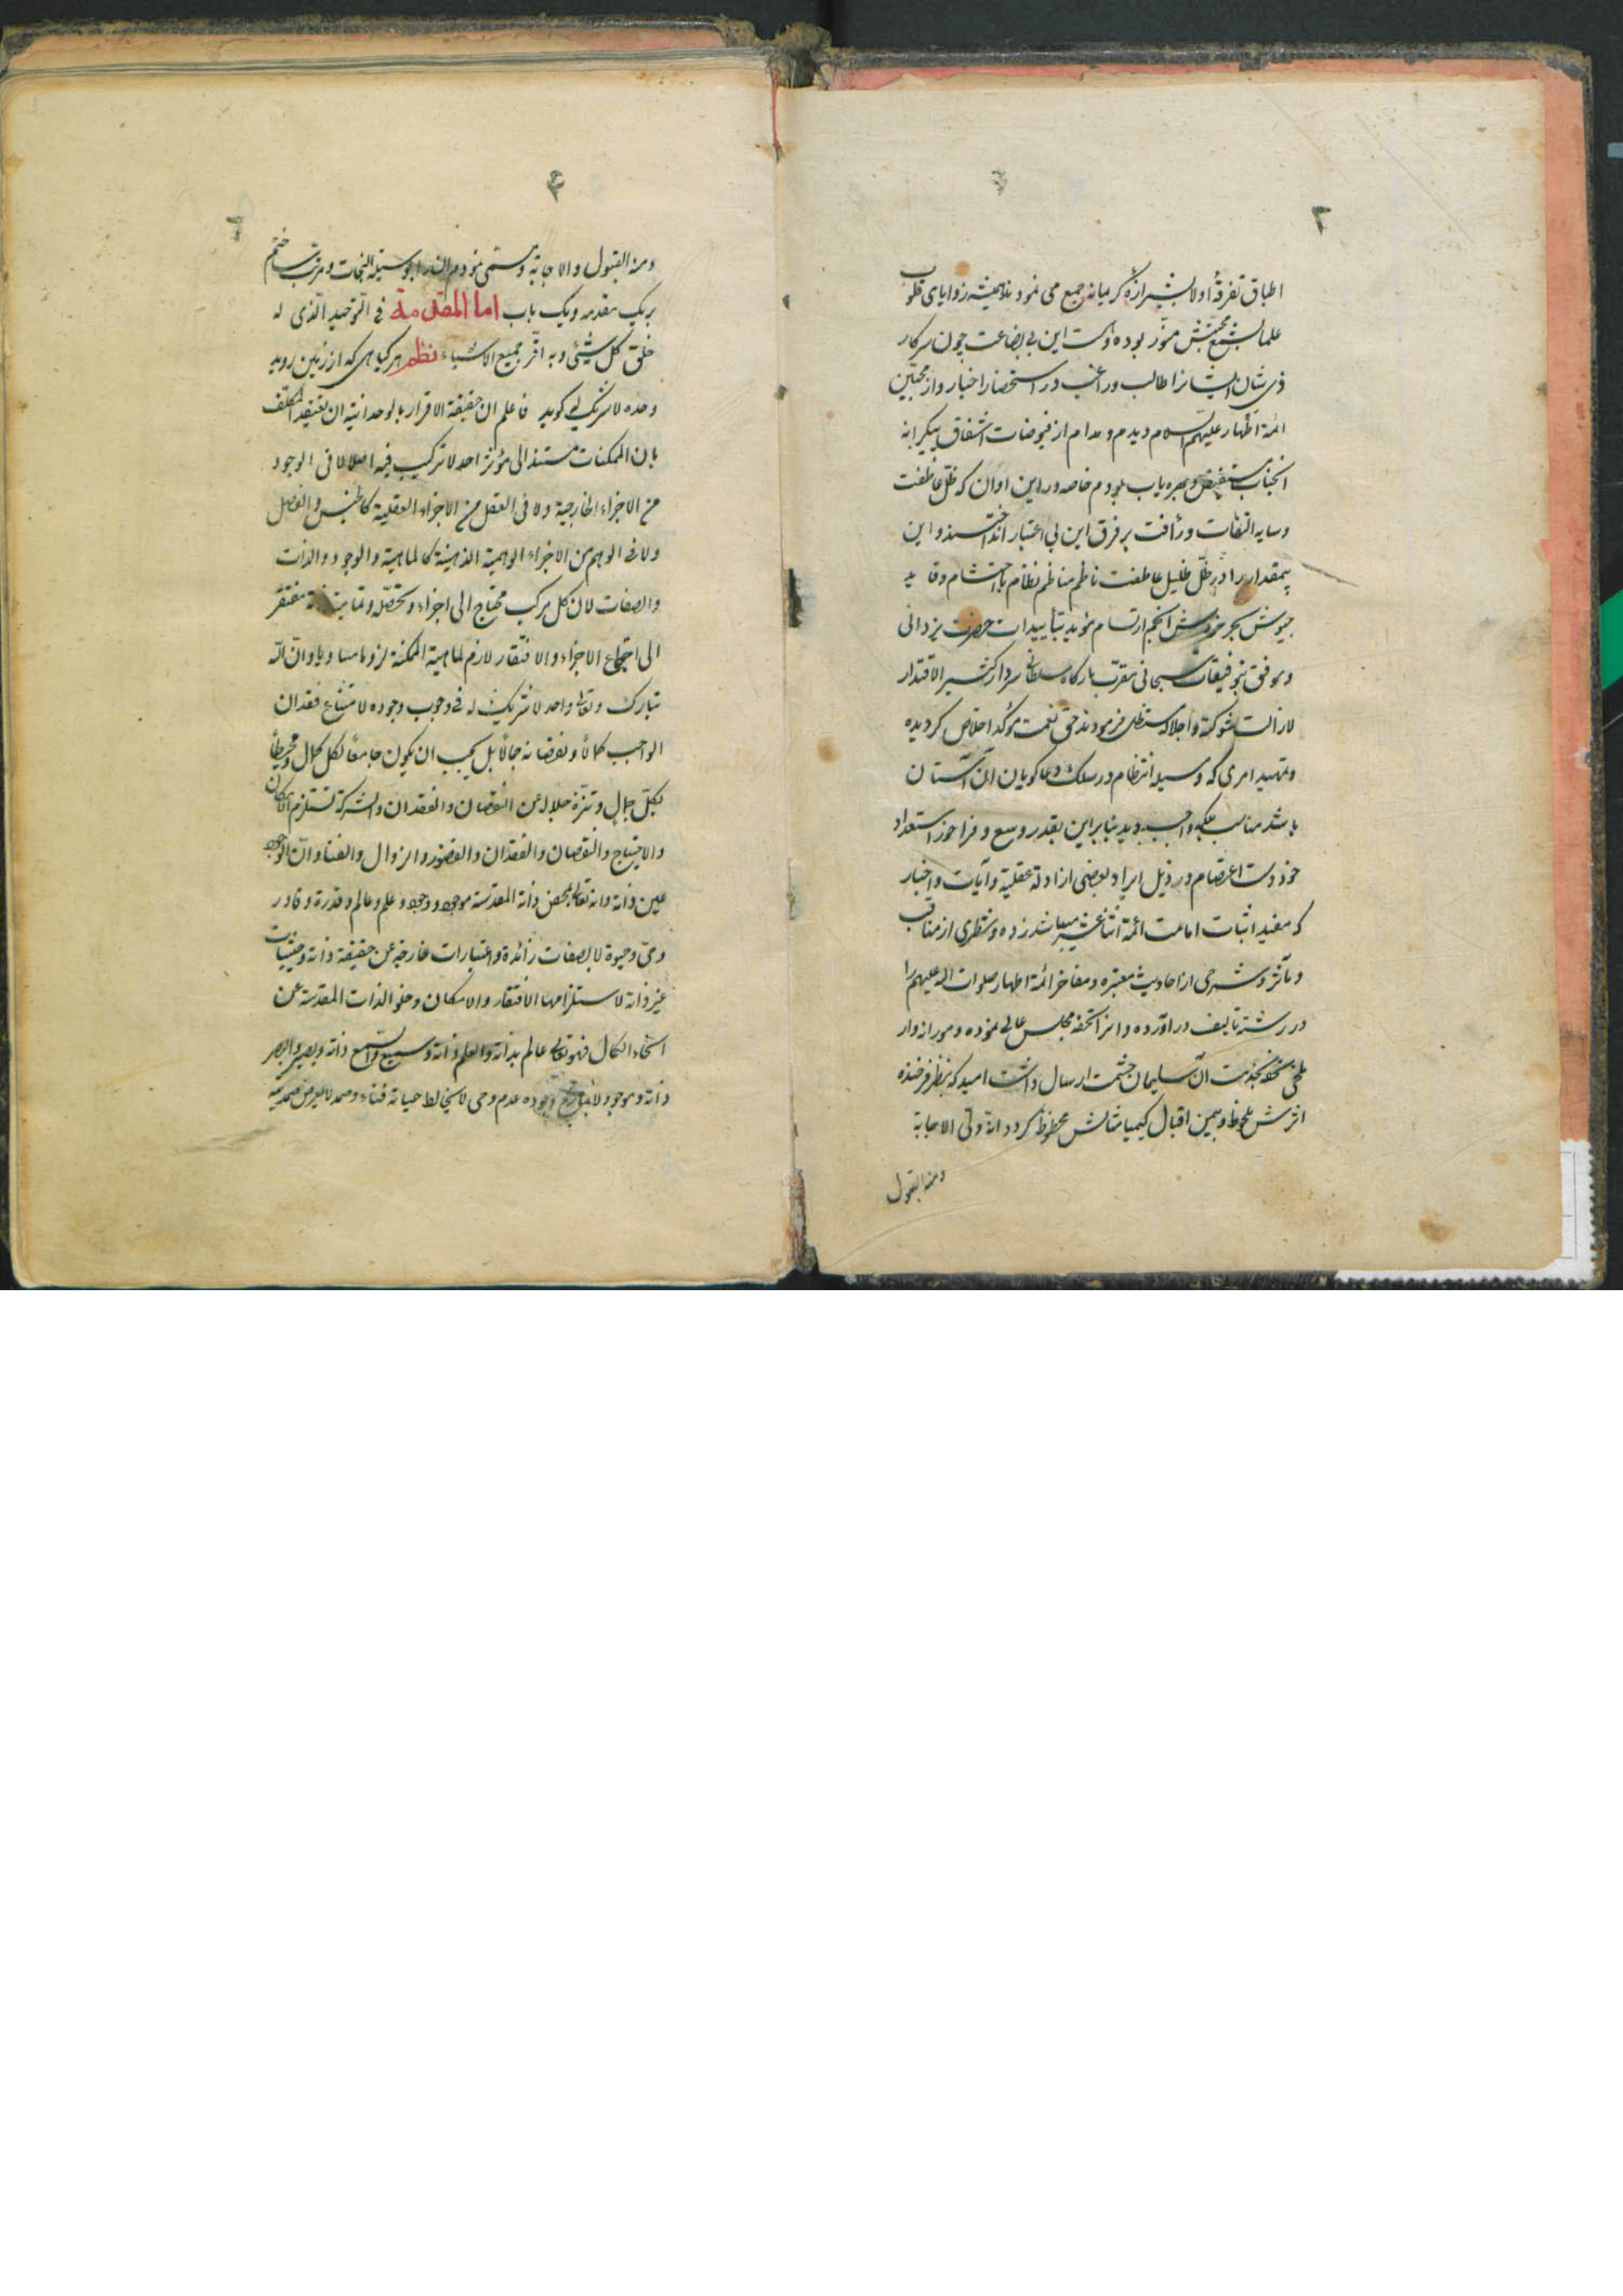 ۳
اطباق تفرقهٔ اولا بشیرازهٔ کریمانه جمع می نمودند و همیشه زوایای قلوب
علما بشمع محبتش منور بوده و است این بی بضاعت چون سرکار
ذی شان ایشانرا طالب و راغب در استحضار اخبار و از محبین
ائمهٔ اطهار علیهم السلام دیدم و مدام از فیوضات اشفاق بیکرانه
انجناب مستفیض و بهره یاب بودم خاصه در این اوان که ظل عاطفت
و سایه التفات و رأفت بر فرق این بی اعتبار انداختند و این
بیمقدار را در ظل ظلیل عاطفت ناظم مناظم نظام با احتشام و قاید
جیوش بحر خروش انجم ارتسام مؤید بتأییدات حضرت یزدانی
و موفق بتوفیقات سبحانی مقرب بارگاه سلطانی سردار کثیر الاقتدار
لازالت شوکته و اجلاله مستظل فرمودند حق نعمت مؤکد اخلاص کردیده
و تمهید امری که وسیله انتظام در سلک دعا کویان آن آستان
باشد مناسب بلکه واجب دید بنا بر این بقدر وسع و فراخور استعداد
خود دست اعتصام در ذیل ایراد بعضی از ادلهٔ عقلیه و آیات و اخبار
که مفید اثبات امامت ائمهٔ اثنا عشر میباشند زده و شطری از مناقب
و مآثر و شرحی از احادیث معتبره و مفاخر ائمهٔ اطهار صلوات الله علیهم را
در رشته تألیف در آورده و انرا تحفه مجلس عالی نموده و مورانه وار
ملخی تحفه بخدمت آن سلیمان حشمت ارسال داشت امید که بنظر فرخنده
اثرش ملحوظ و بیمن اقبال کیمیا مثالش محظوظ کردد انه ولی الاجابة
ومنه القبول
۴
ومنه القبول والاجابة و مسمی نمودم انرا بوسیلة النجات و مرتب ساختم
بر یک مقدمه و یک باب اما المقدمة فی التوحید الذی له
خلق کل شیئ و به اقر جمیع الاشیاء نظم هر کیاهی که از زمین روید
وحده لاشریک له کوید فاعلم ان حقیقة الاقرار بالوحدانیة ان یعتقد المکلف
بان الممکنات مستند الی مؤثر احد لا ترکیب فیه اصلا لا فی الوجود
من الاجزاء الخارجیة ولا فی العقل من الاجزاء العقلیة کالجنس والفصل
ولا فی الوهم من الاجزاء الوهمیة الذهنیة کالماهیة والوجود والذات
والصفات لان کل مرکب محتاج الی اجزاء و تحصله و تمامیته مفتقر
الی اجتماع الاجزاء والافتقار لازم لماهیة الممکنة لزوما مساویا وان الله
تبارک وتعالی واحد لا شریک له فی وجوب وجوده لامتناع فقدان
الواجب کمالا ونقصانه جمالا بل یجب ان یکون جامعا لکل کمال ومحیطا
بکل جمال وتنزه جلاله عن النقصان والفقدان والشرکة تستلزم الامکان
والاحتیاج والنقصان والفقدان والقصور والزوال والفناء وان الوجود
عین ذاته وانه تعالی بمحض ذاته المقدسة موجود ووجود وعلم وعالم وقدرة وقادر
وحی وحیوة لا بصفات زائدة واعتبارات خارجة عن حقیقة ذاته وحیثیات
غیر ذاته لاستلزامها الافتقار والامکان وخلو الذات المقدسة عن
انحاء الکمال فهو تعالی عالم بذاته والعلم ذاته وسمیع والسمع ذاته وبصیر والبصر
ذاته وموجود لا یمازج وجوده عدم وحی لا یخالط حیاته فناء وصمد لا یعرض صمدیته